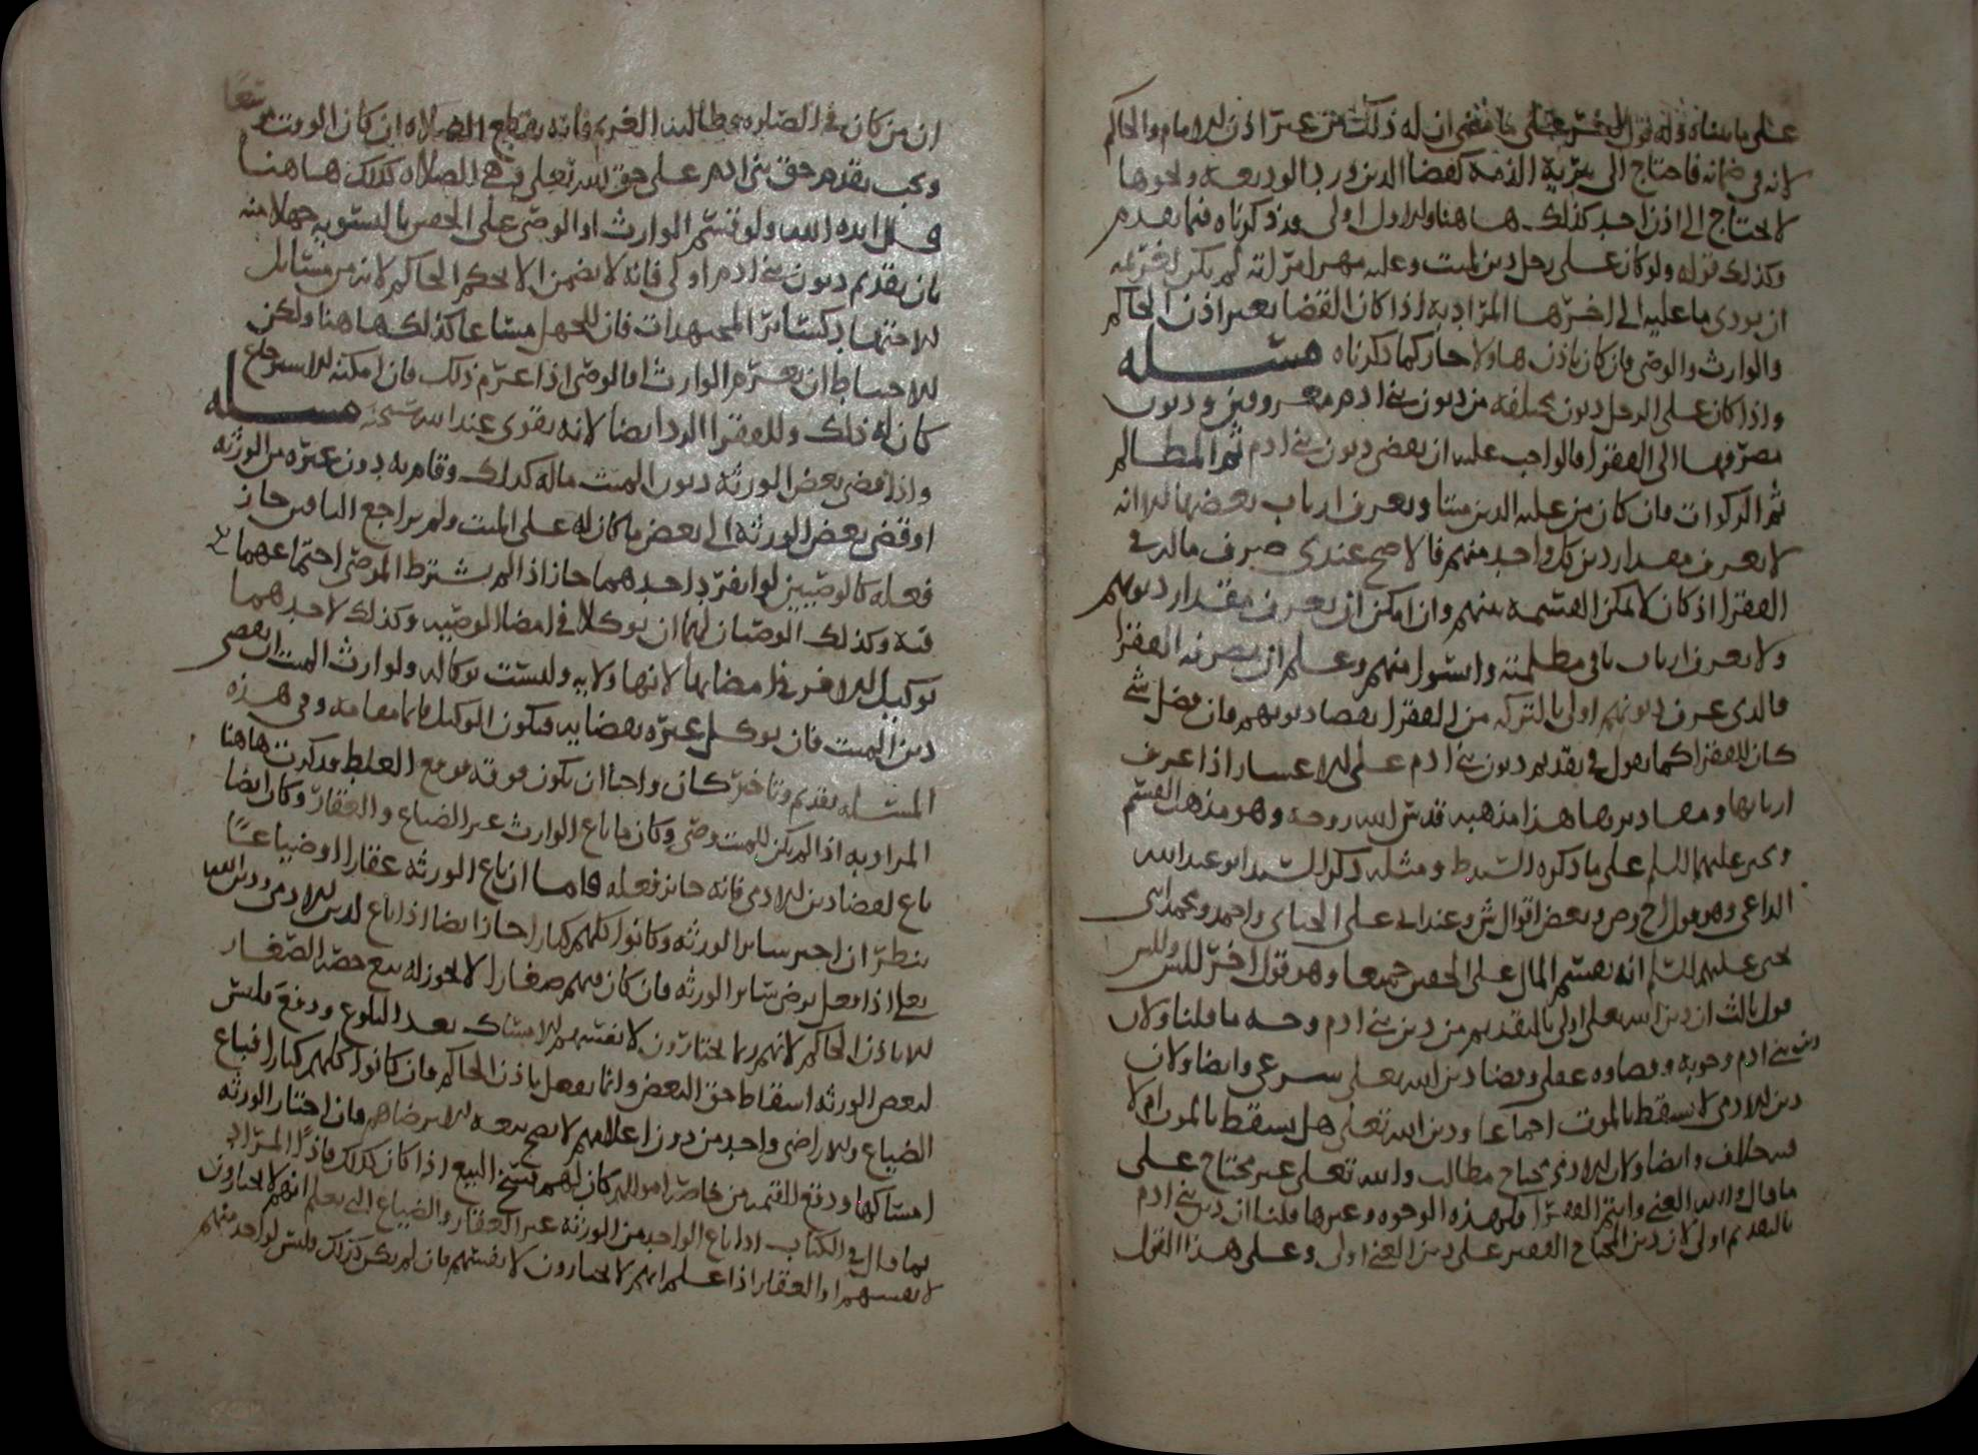 على ما بيناه وله قول اخر على ما مضى ان له ذلك من غير اذن الامام والحاكم
لانه في ضمانه فاحتاج الى تبرية الذمة كقضا الدين ورد الوديعة ونحوها
لا يحتاج الى اذن احد كذلك هاهنا والاول اولى وقد ذكرناه فيما تقدم
وكذلك قوله ولو كان على رجل دين لميت وعليه مهر امراته لم يكن لغريمه
ان يودي ما عليه الى اخرها المراد به اذا كان القضا بغير اذن الحاكم
والوارث والوصي فان كان باذن هاولا جاز كما ذكرناه مسله
واذا كان على الرجل ديون مختلفة من ديون بني ادم معروفين وديون
مصرفها الى الفقرا فالواجب عليه ان يقضي ديون بني ادم ثم المظالم
ثم الزكوات فان كان من عليه الدين ميتا ويعرف ارباب بعضها الا انه
لا يعرف مقدار دين كل واحد منهم فالاصح عندي صرف ماله في
الفقرا اذ كان لا يمكن القسمة بينهم وان امكن ان يعرف مقدار ديونهم
ولا يعرف ارباب باقي مظلمته وايسوا منهم وعلم ان يصرفه الفقرا
فالذي عرف ديونهم اولى بالتركه من الفقرا بقضا ديونهم فان فضل شي
كان للفقرا كما يقول في تقديم ديون بني ادم على الاعسار اذا عرف
اربابها ومقاديرها هذا مذهبه قدس الله روحه وهو مذهب القسم
ويحيى عليهما السلم على ما ذكره السيد ط ومثله ذكر السيد ابو عبد الله
الداعي وهو قول ح وص وبعض اقوال ش وعند ابي على الجباي واحمد ومحمد ابني
يحيى عليهم السلم انه يقسم المال على الحصص جميعا وهو قول اخر للش وللش
قول ثالث ان دين الله تعلى اولى بالتقديم من دين بني ادم وجه ما قلنا ولان
دين بني ادم وجوبه وقضاوه عقلي وقضا دين الله تعلى شرعي وايضا ولان
دين الادمي لا يسقط بالموت اجماعا ودين الله تعلى هل يسقط بالموت ام لا
فيه خلاف وايضا ولان الادمي محتاج مطالب والله تعلى غير محتاج على
ما قال والله الغني وانتم الفقرا فلهذه الوجوه وغيرها قلنا ان دين بني ادم
بالتقديم اولى لان دين المحتاج الفقير على دين الغني اولى وعلى هذا القول
ان من كان في الصلاه يطالبه الغريم فانه يقطع الصلاه ان كان الوقت متسعا
ويجب تقديم حق بني ادم على حق الله تعلى وهي الصلاه كذلك هاهنا
قال ايده الله ولو قسم الوارث او الوصي على الحصص بالتسويه جهلا منه
بان تقديم ديون بني ادم اولى فانه لا يضمن الا بحكم الحاكم لانه من مسايل
الاجتهاد كساير المجتهدات فان للجهل مساغا كذلك هاهنا ولكن
الاحتياط ان يغرم الوارث او الوصي اذا غرم ذلك فان امكنه الاسترجاع
كان له ذلك وللفقرا الرد ايضا لانه يقوى عند الله مسله
واذا قضى بعض الورثه ديون الميت ماله كذلك وقام به دون غيره من الورثه
او قضى بعض الورثه الى بعض ما كان له على الميت ولم يراجع الباقين جاز
فعله كالوصيين لو انفرد احدهما جاز اذا لم يشترط الموصي اجتماعهما
فيه وكذلك الوصيان لهما ان يوكلا في امضا الوصيه وكذلك لاحدهما
توكيل الاخر في امضايها لانها ولايه وليست بوكاله ولوارث الميت ان يقضي
دين الميت فان يوكل غيره بقضايه فيكون الوكيل قايما مقامه وفي هذه
المسله تقديم وتاخير كان واجبا ان يكون فوقه فوقع الغلط فذكرت هاهنا
المراد به اذا لم يكن للميت وصي وكان ما باع الوارث غير الضياع والعقار وكان ايضا
باع لقضا دين الادمي فانه جايز فعله فاما ان باع الورثه عقارا او ضياعا
ينظر ان اجبر ساير الورثه وكانوا كلهم كبارا جاز ايضا اذا باع لدين الادمي ودين الله
تعلى اذا فعل برضى ساير الورثه فان كان فيهم صغارا لا يجوز له بيع حصة الصغار
الا باذن الحاكم لانهم ربما يختارون لانفسهم الامساك بعد البلوغ ودفع فليس
لبعض الورثه اسقاط حق البعض وانما يفعل باذن الحاكم فان كانوا كلهم كبارا فباع
الضياع والاراضي واحد من دون اعلامهم لا يصح بيعه الا برضاهم فان اختار الورثه
امساكها ودفع القيمه من خاصة اموالهم كان لهم فسخ البيع اذا كان كذلك فاذا المراد
بما قال في الكتاب اذا باع الواحد من الورثه غير العقار والضياع التي يعلم انهم لا يختارون
لانفسهم او العقار اذا علم انهم لا يختارون لانفسهم فان لم يكن كذلك فليس لواحد منهم